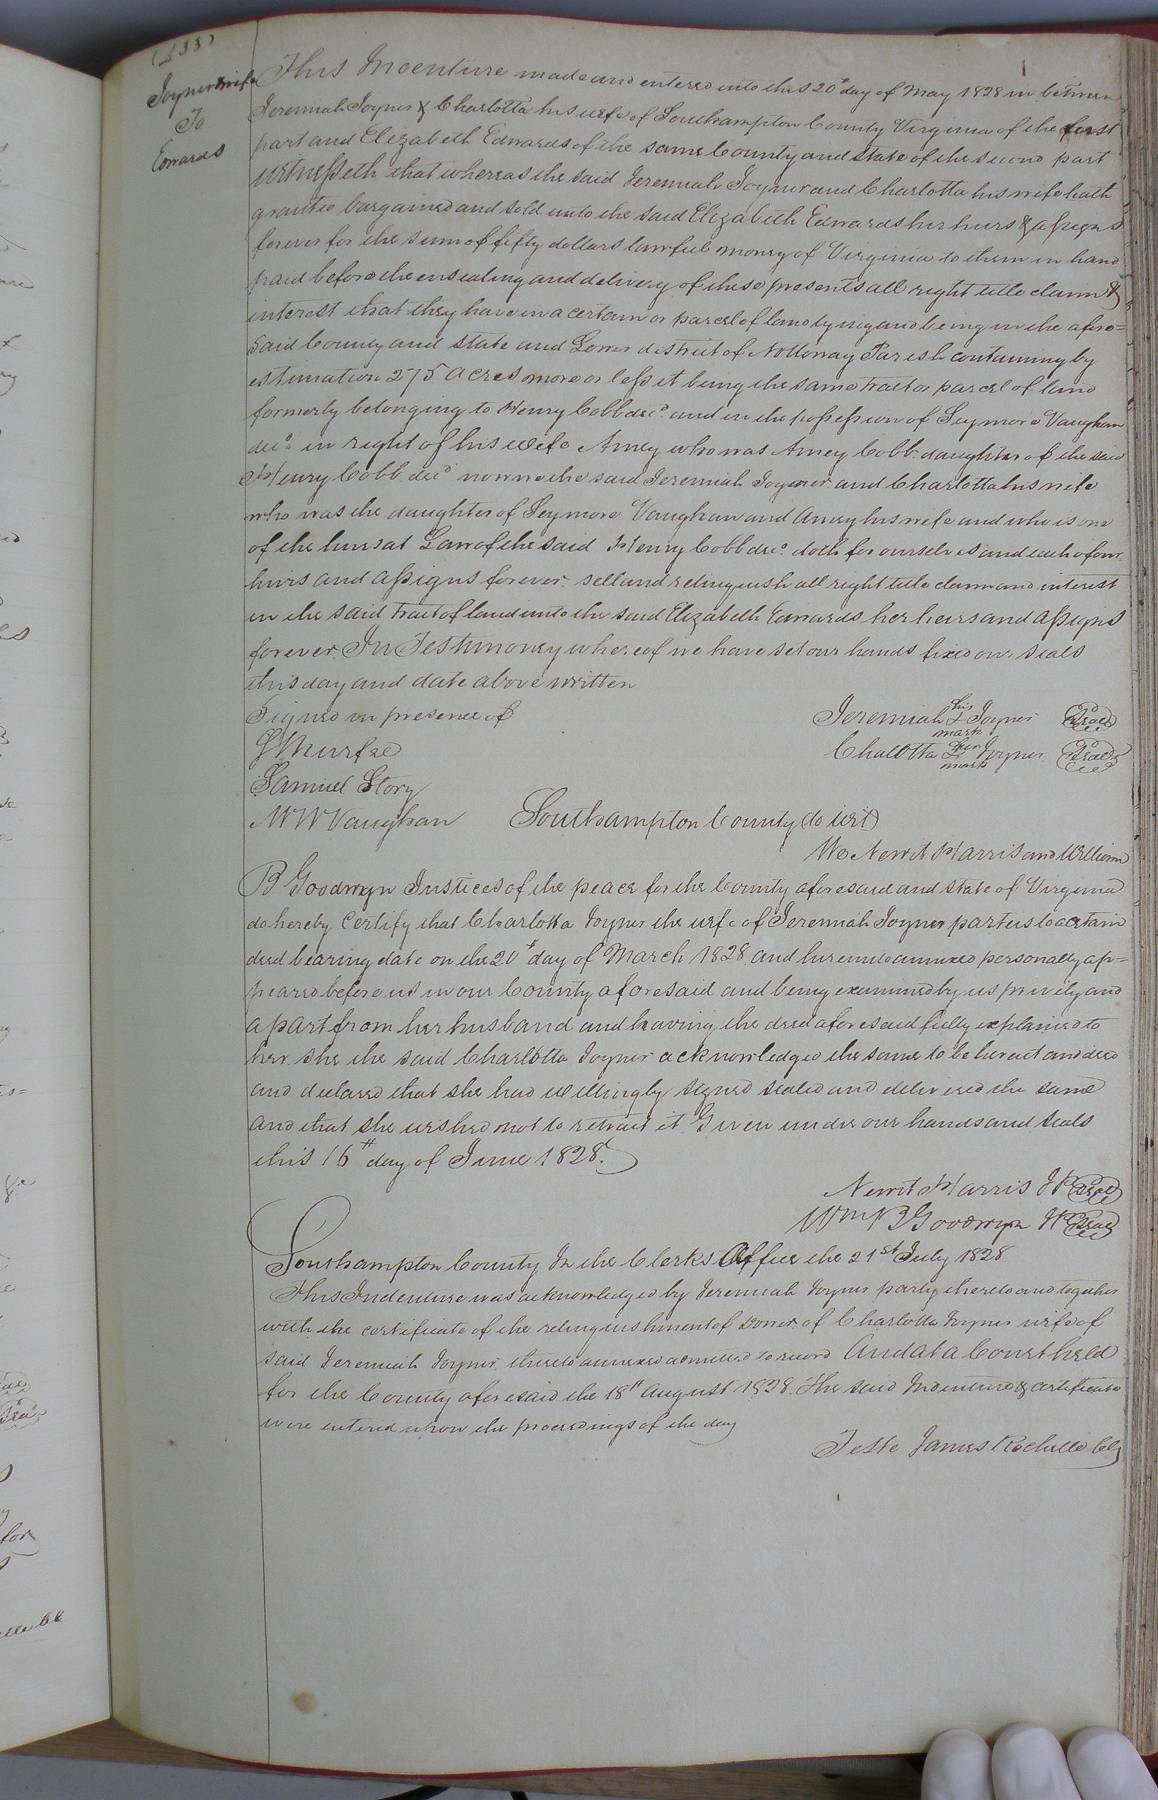 Joyner & wife
To
Edwards
This Indenture made and entered into this 20th day of May 1828 in between
Jeremiah Joyner & Charlotta his wife of Southampton County Virginia of the first
part and Elizabeth Edwards of the same County and State of the second part
witnesseth that whereas the said Jeremiah Joyner and Charlotta his wife hath
granted bargained and sold unto the said Elizabeth Edwards her heirs & assigns
forever for the sum of fifty dollars lawful money of Virginia to them in hand
paid before the ensealing and delivery of these presents all right title claim &
interest that they have in a certain or parcel of land lying and being in the afore=
said County and state and Lower district of Nottoway Parish containing by
estimation 275 acres more or less it being the same tract or parcel of land
formerly belonging to Henry Cobb decd. and in the possession of Seymore Vaughan
decd. in right of his wife Amey who was Amey Cobb daughter of the said
Henry Cobb decd now we the said Jeremiah Joyner and Charlotta his wife
who was the daughter of Seymore Vaughan and Amey his wife and who is one
of the heirs at Law of the said Henry Cobb decd. doth for ourselves and each of our
heirs and assigns forever sell and relinquish all right title claim and interest
in the said tract of land unto the said Elizabeth Edwards her heirs and assigns
forever In Testimony whereof we have set our hands fixed our seals
this day and date above written
Signed in presence of
Jeremiah his + mark Joyner Seal
Charlotta her + mark Joyner Seal
J Murfee
Samuel Story
M W Vaughan
Southampton County (to wit)
We Newit Harris and William
B Goodwyn Justices of the peace for the County aforesaid and state of Virginia
do hereby Certify that Charlotta Joyner the wife of Jeremiah Joyner parties to a certain
deed bearing date on the 20th day of March 1828 and hereunto annexed personally ap=
peared before us in our County aforesaid and being examined by us privily and
apart from her husband and having the deed aforesaid fully explained to
her she the said Charlotta Joyner acknowledged the same to be her act and deed
and declared that she had willingly signed sealed and delivered the same
and that she wished not to retract it Given under our hands and seals
this 16th day of June 1828.
Newit Harris JP Seal
Wm B Goodwyn JP Seal
Southampton County In the Clerks Office the 21st July 1828
This Indenture was acknowledged by Jeremiah Joyner party thereto and together
with the certificate of the relinquishment of Dower of Charlotta Joyner wife of
said Jeremiah Joyner thereto annexed admitted to record And at a Court held
for the County aforesaid the 18th August 1828 The said Indenture & certificate
were entered upon the proceedings of the day
Teste James Rochelle Clk